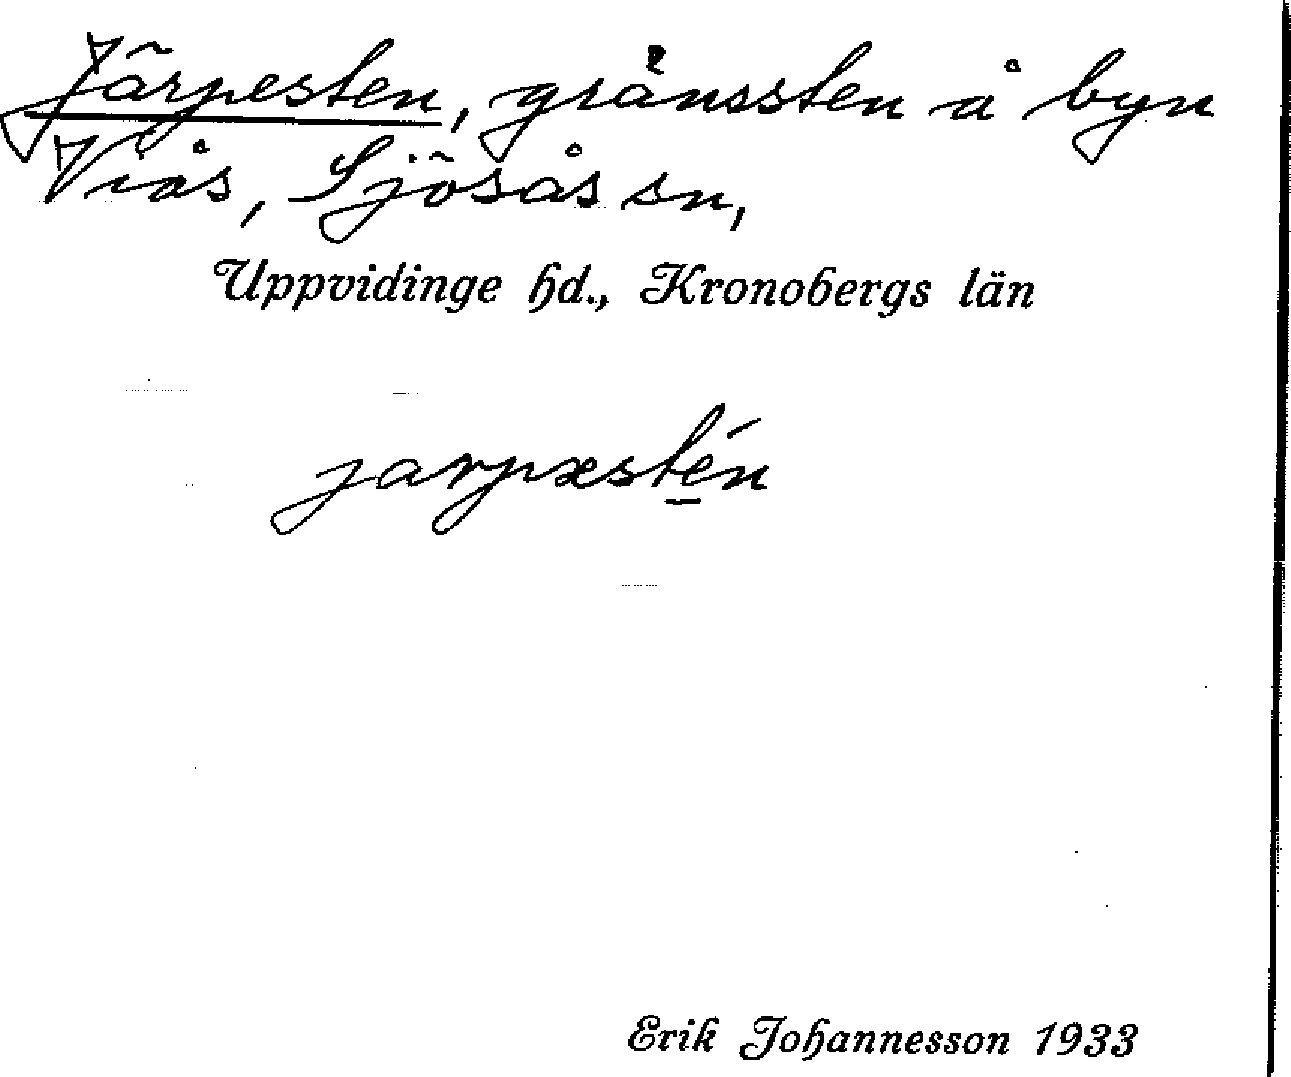 Järpesten, gränssten å byn
Viås, Sjösås sn,
Uppvidinge hd., Kronobergs län
jarpæstén
Erik Johannesson 1933